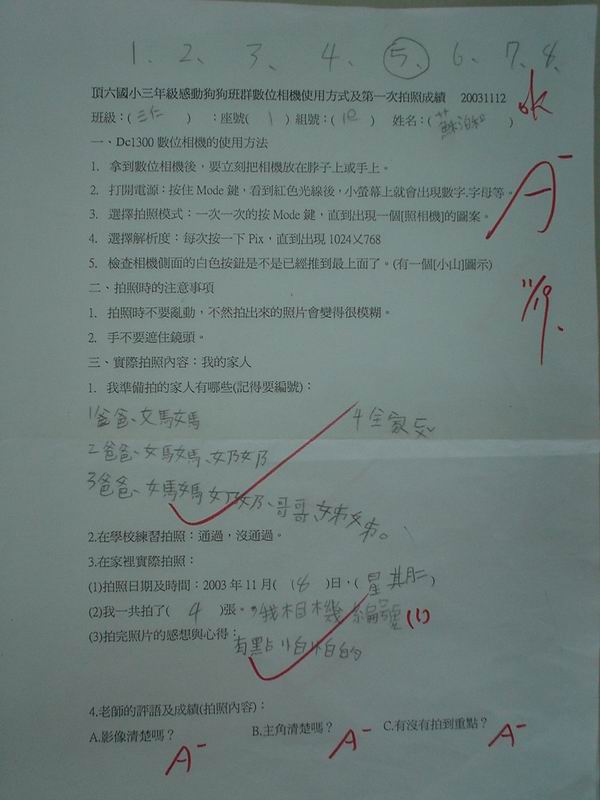 1、2、3、4、5、6、7、8、
頂六國小三年級感動狗狗班群數位相機使用方式及第一次拍照成績 20031112
ok
班級：(三仁) ：座號(1)組號：( ) 姓名：(蘇 )
A-
一、Dc1300 數位相機的使用方法
1. 拿到數位相機後，要立刻把相機放在脖子上或手上。
2. 打開電源：按住 Mode 鍵，看到紅色光線後，小螢幕上就會出現數字.字母等。
3. 選擇拍照模式：一次一次的按 Mode 鍵，直到出現一個[照相機]的圖案。
4. 選擇解析度：每次按一下 Pix，直到出現 1024╳768
5. 檢查相機側面的白色按鈕是不是已經推到最上面了。(有一個[小山]圖示)
11/19、
二、拍照時的注意事項
1. 拍照時不要亂動，不然拍出來的照片會變得很模糊。
2. 手不要遮住鏡頭。
三、實際拍照內容：我的家人
1. 我準備拍的家人有哪些(記得要編號)：
1爸爸、媽媽
4全家
2爸爸、媽媽、奶奶
3爸爸、媽媽、奶奶、哥哥、妹妹。
2.在學校練習拍照：通過，沒通過。
3.在家裡實際拍照：
(1)拍照日期及時間：2003 年 11 月( 18 )日，( 星期二 )
(2)我一共拍了( 4 )張。我相機編號(1)
(3)拍完照片的感想與心得：有點怕怕的
4.老師的評語及成績(拍照內容)：
A.影像清楚嗎？ B.主角清楚嗎？ C.有沒有拍到重點？
A- A- A-